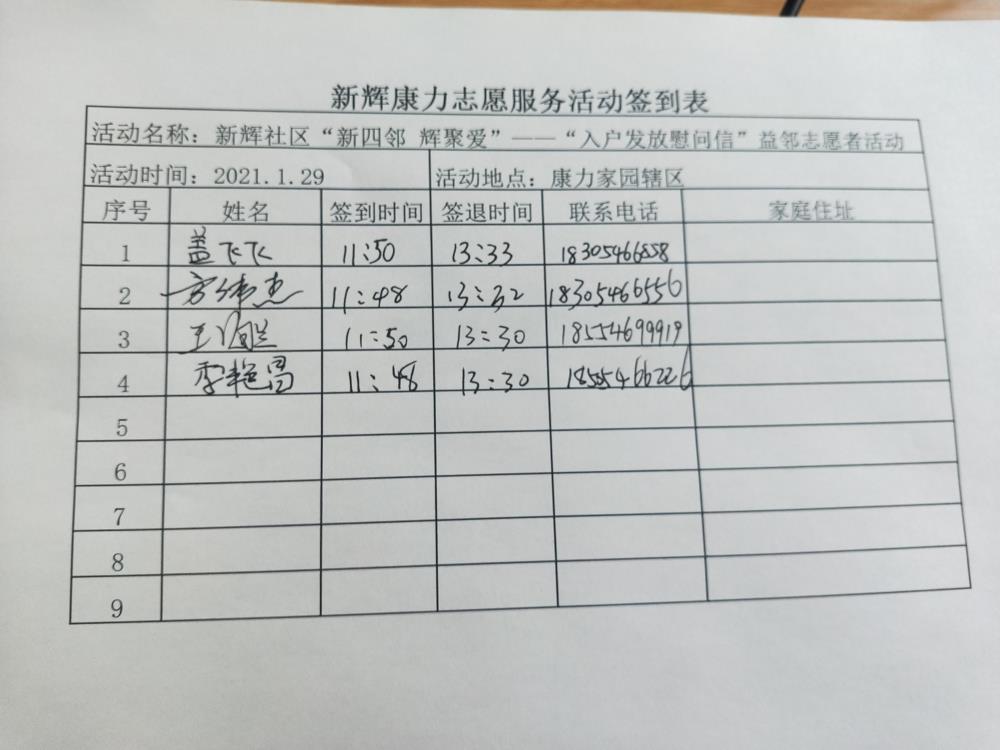 新辉康力志愿服务活动签到表
活动名称：新辉社区“新四邻 辉聚爱”——“入户发放慰问信”益邻志愿者活动
活动时间：2021.1.29 活动地点：康力家园辖区
序号 姓名 签到时间 签退时间 联系电话 家庭住址
1 盖飞飞 11:50 13:33 18305466858
2 方纬杰 11:48 13:32 18305466556
3 王 11:50 13:30 18554699919
4 李艳昌 11:48 13:30 1855466226
5
6
7
8
9